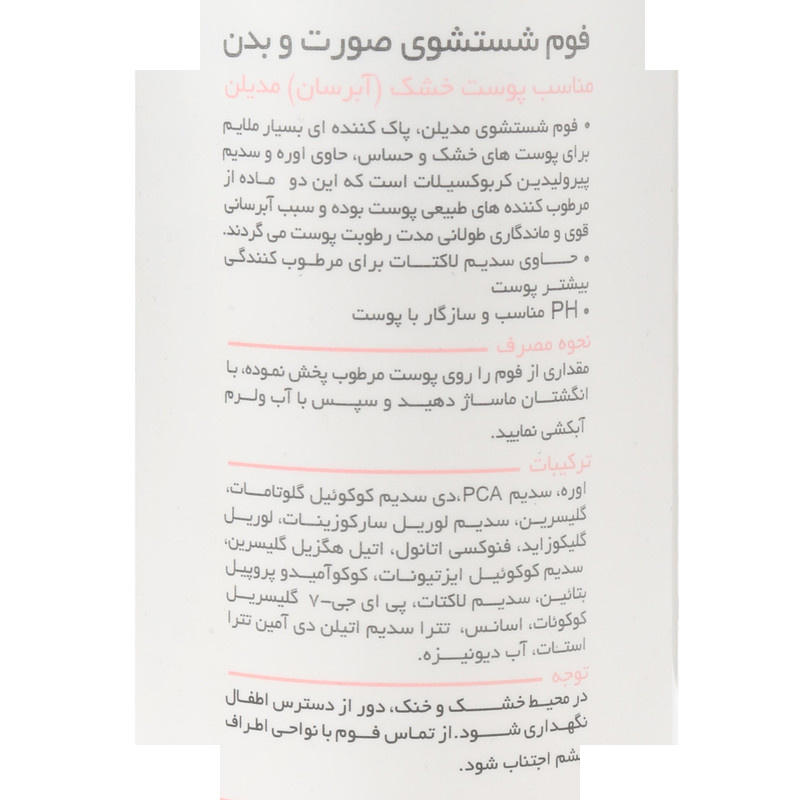 فوم شستشوی صورت و بدن
مناسب پوست خشک (آبرسان) مدیلن
• فوم شستشوی مدیلن، پاک کننده ای بسیار ملایم
برای پوست های خشک و حساس، حاوی اوره و سدیم
پیرولیدین کربوکسیلات است که این دو ماده از
مرطوب کننده های طبیعی پوست بوده و سبب آبرسانی
قوی و ماندگاری طولانی مدت رطوبت پوست می گردند.
• حاوی سدیم لاکتات برای مرطوب کنندگی
بیشتر پوست
• PH مناسب و سازگار با پوست
نحوه مصرف
مقداری از فوم را روی پوست مرطوب پخش نموده، با
انگشتان ماساژ دهید و سپس با آب ولرم
آبکشی نمایید.
ترکیبات
اوره، سدیم PCA،دی سدیم کوکوئیل گلوتامات،
گلیسرین، سدیم لوریل سارکوزینات، لوریل
گلیکوزاید، فنوکسی اتانول، اتیل هگزیل گلیسرین،
سدیم کوکوئیل ایزتیونات، کوکوآمیدو پروپیل
بتائین، سدیم لاکتات، پی ای جی-۷ گلیسریل
کوکوئات، اسانس، تترا سدیم اتیلن دی آمین تترا
استات، آب دیونیزه.
توجه
در محیط خشک و خنک، دور از دسترس اطفال
نگهداری شود.از تماس فوم با نواحی اطراف
چشم اجتناب شود.